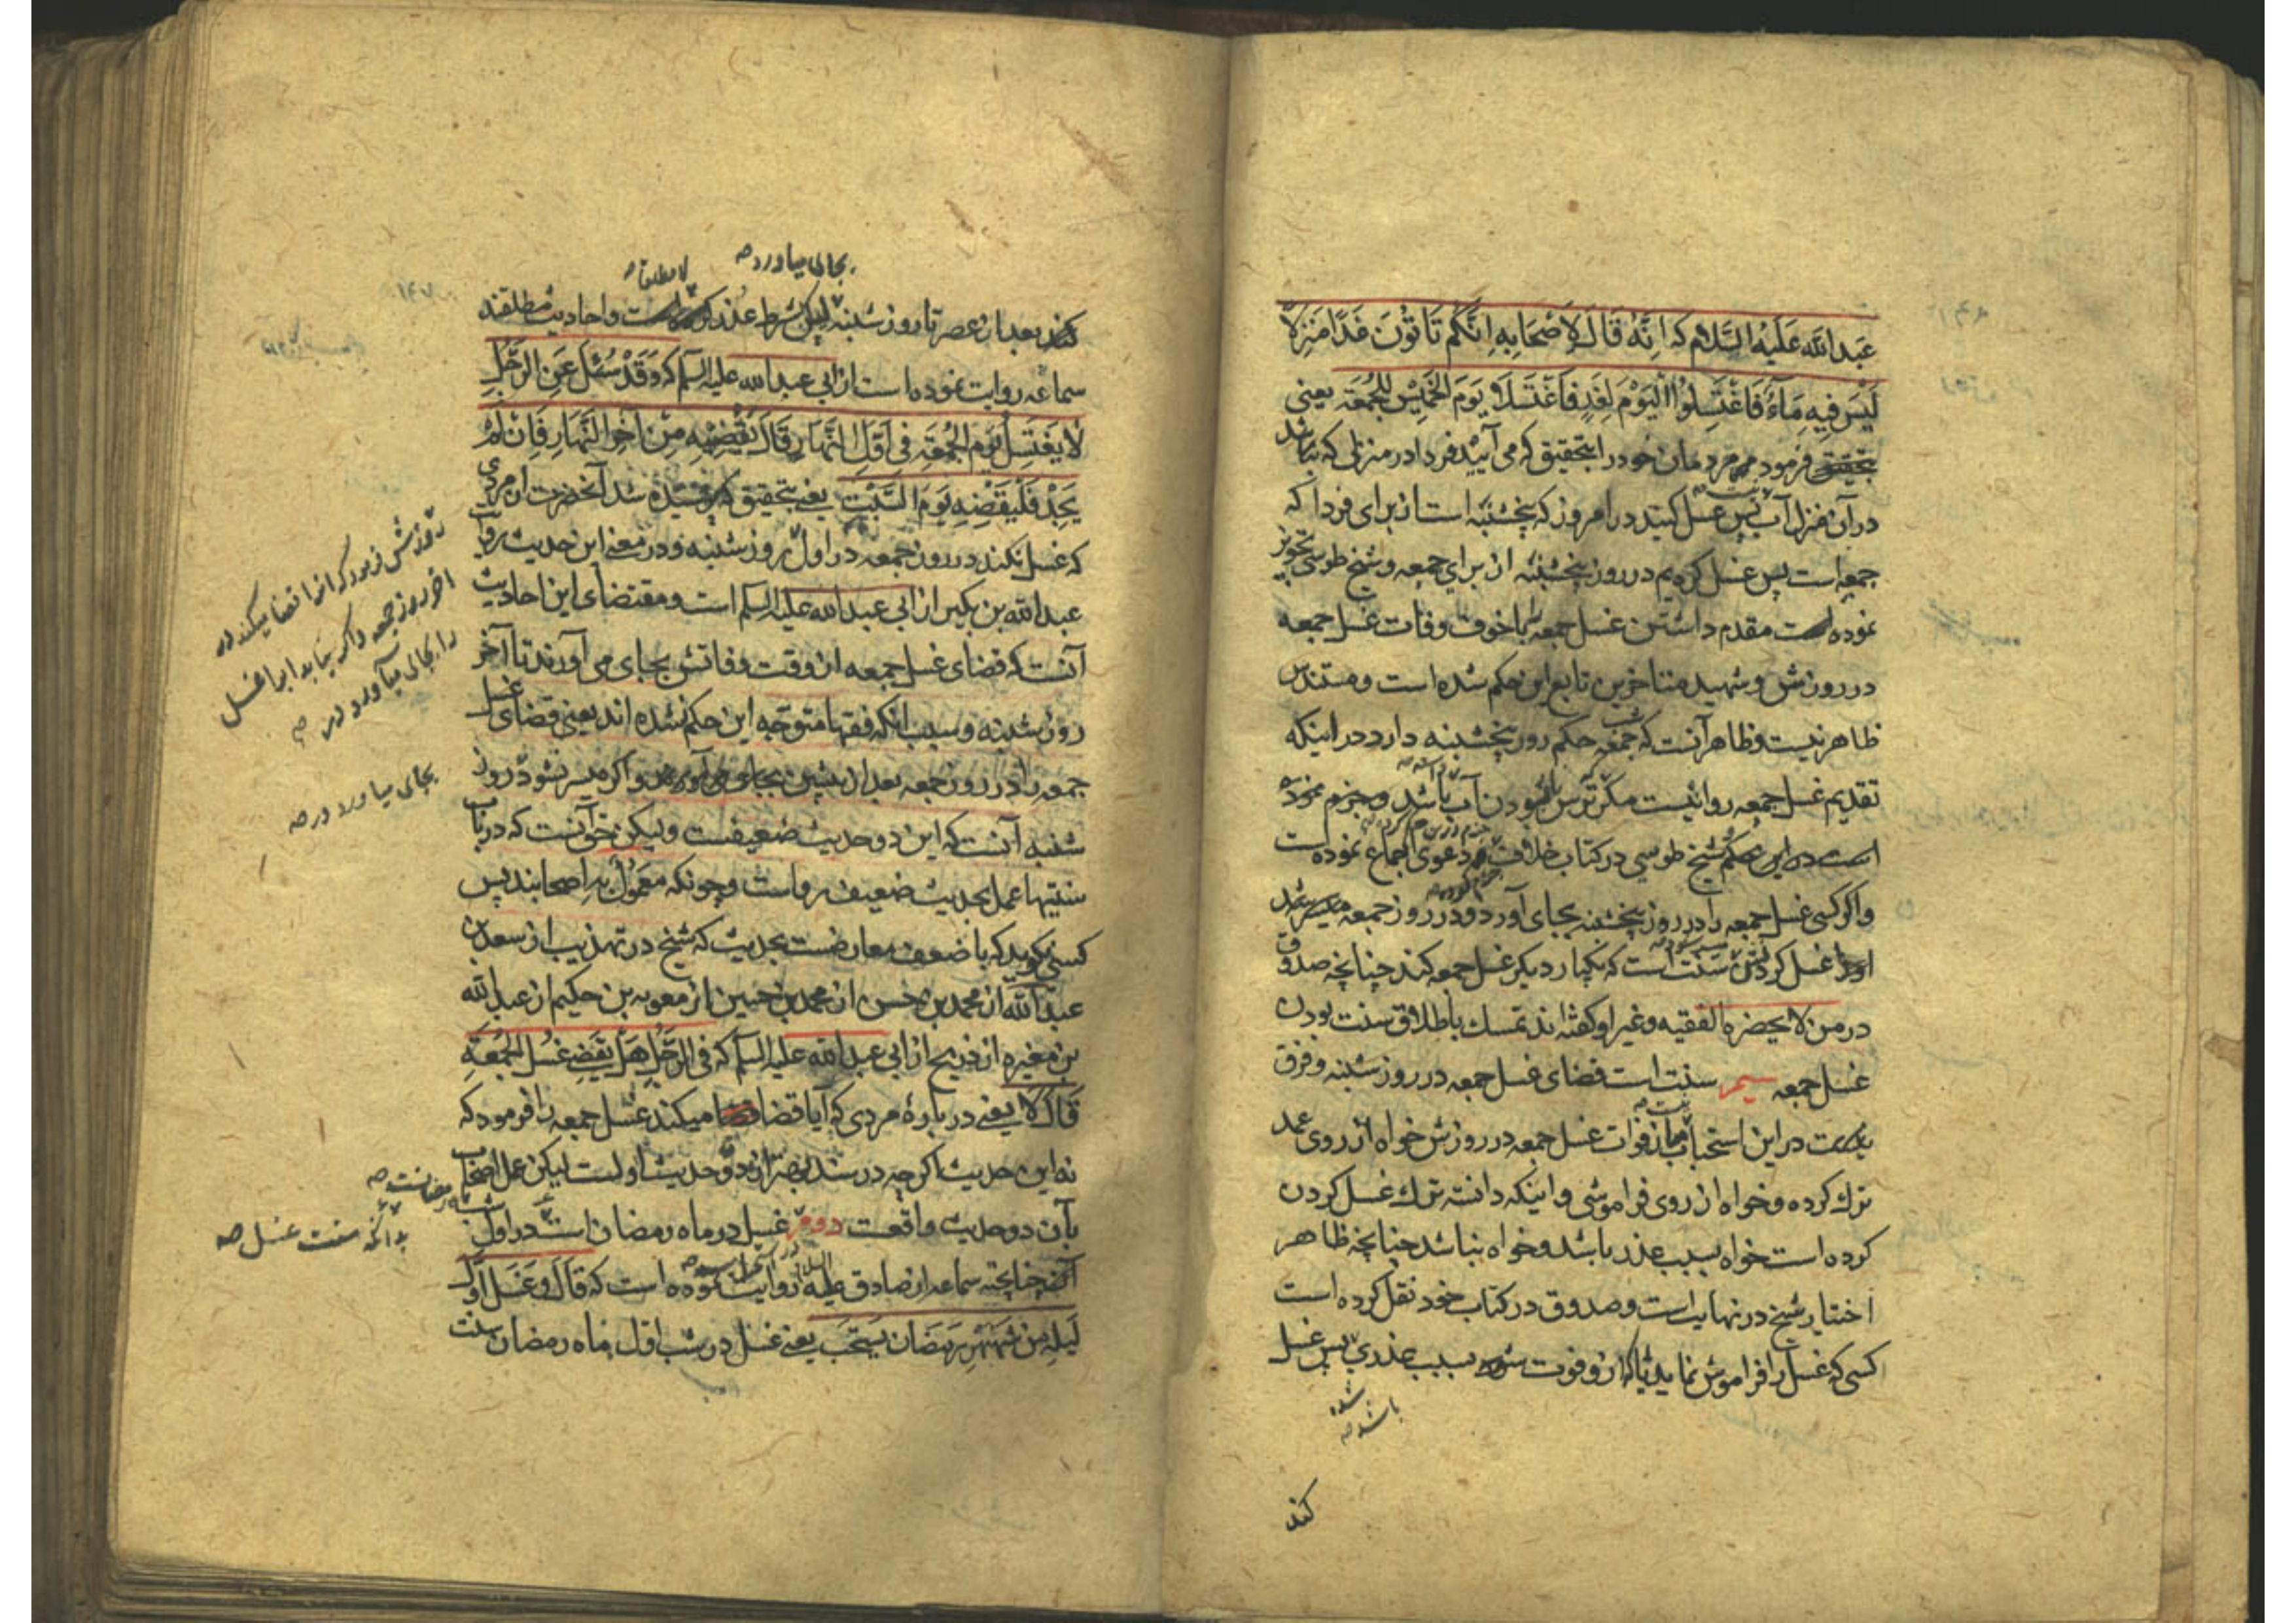 عبدالله عَلَيْهِ السَّلام که اِنَّهُ قَالَ لِاَصْحَابِهِ اِنَّكُمْ تَاْتُونَ غَدًا مَنْزِلًا
لَيْسَ فِيهِ مَاءٌ فَاغْتَسِلُوا الْيَوْمَ لِغَدٍ فَاغْتَسَلْنَا يَوْمَ الْخَمِيْسِ لِلْجُمُعَةِ یعنی
بتحقیق فرمود مردمان خود را بتحقیق که می آیید فردا در منزلی که نباشد
در آن منزل آب پس غسل کنید در امروز که پنجشنبه است از برای فردا که
جمعه است پس غسل کردیم در روز پنجشنبه از برای جمعه و شیخ طوسی تجویز
نموده است مقدم داشتن غسل جمعه را با خوف وفات غسل جمعه
در روزش و شهید متاخرین تابع این حکم شده است و مستندش
ظاهر نیست و ظاهر آنست که شب جمعه حکم روز پنجشنبه دارد در اینکه
تقدیم غسل جمعه روا نیست مکر ترس نابودن آب باشد و جزم نموده
است در این حکم شیخ طوسی در کتاب خلاف و دعوی اجماع نموده است
واکر کسی غسل جمعه را در روز پنجشنبه بجای آورد و در روز جمعه میسر شد
او را غسل کردن سنت است که یکبار دیکر غسل جمعه کند چنانچه صدوق
در من لا یحضره الفقیه و غیر او کفته اند تمسك باطلاق سنت بودن
غسل جمعه سیم سنت است قضای غسل جمعه در روز شنبه و فرق
نیست در این استحباب میان فوات غسل جمعه در روزش خواه از روی عمد
ترك کرده و خواه از روی فراموشی و اینکه دانسته ترك غسل کردن
کرده است خواه بسبب عذر باشد و خواه نباشد چنانچه ظاهر
اختیار شیخ در نهایه است و صدوق در کتاب خود نقل کرده است
کسی که غسل را فراموش نماید یا که از و فوت شود بسبب عذری پس غسل
شده
باشد صح
کند
بجای میاورد صح
لا مطلقا صح
کند بعد از عصر تا روز شنبه لیکن بشرط عذر کرده است و احادیث مطلقند
سماعه روایت نموده است از ابی عبدالله علیه السلم که وَقَدْ سُئِلَ عَنِ الرَّجُلِ
لَا يَغْتَسِلُ يَوْمَ الْجُمُعَةِ فِي اَوَّلِ النَّهَارِ قَالَ يَقْضِيْهِ مِنْ اٰخِرِ النَّهَارِ فَاِنْ لَمْ
يَجِدْ فَلْيَقْضِهِ يَوْمَ السَّبْتِ یعنی بتحقیق که پرسیده شد آنحضرت از مردی
که غسل نکند در روز جمعه در اول روز شنبه و در معنی این حدیث روایت
عبدالله بن بکیر از ابی عبدالله علیه السلم است و مقتضای این احادیث
آنست که قضای غسل جمعه از وقت وفاتش بجای می آورند تا آخر
روز شنبه و سبب انکه فقها متوجه این حکم نشده اند یعنی قضای غسل
جمعه را در روز جمعه بعد از پیشین بجای می آورند و اکر میسر نشود در روز
شنبه آنست که این دو حدیث ضعیفست و لیکن حق آنست که در باب
سنتیها عمل بحدیث ضعیف رواست و چونکه معمول به اصحابند پس
کسی نکوید که با ضعف معارضست بحدیث که شیخ در تهذیب از سعد بن
عبدالله از محمد بن حسن از محمد بن حسین از معویه بن حکیم از عبدالله
بن مغیره از ذریح از ابی عبدالله علیه السلم که فِی الرَّجُلِ هَلْ يَقْضِی غُسْلَ الْجُمُعَةِ
قَالَ لَا یعنی در بارهٔ مردی که آیا قضا میکند غسل جمعه را فرمود که
نه این حدیث اکر چه در سند بهتر از ان دو حدیث اولست لیکن عمل اصحاب
بآن دو حدیث واقعست دویم غسل در ماه رمضان است در اول
چنانچه سماعه از صادق علیه السلام روایت نموده است که قَالَ وَغُسْلُ اَوَّلِ
لَيْلَةٍ مِنْ شَهْرِ رَمَضَانَ يُسْتَحَبُّ یعنی غسل در شب اول ماه رمضان سنت
روزش فرمود که انرا قضا میکند در
اخر روز جمعه و اکر نیابد ابرا غسل
را بجای میاورد در صح
بجای میاورد و در صح
ماه رمضانست صح
بدانکه سنت غسل صح